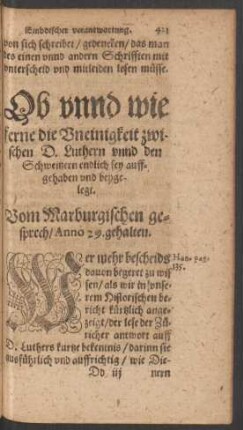 Gründtlicher verantwortung. 421
von sich schreibet / gedencken / das man
des einen vnnd andern Schrifften mit
vnterscheid vnd mitleiden lesen müsse.
Ob vnnd wie
ferne die Vneinigkeit zwi-
schen D. Luthern vnnd den
Schweitzern endlich sey auff-
gehaben vnd beyge-
legt.
Vom Marburgischen ge-
sprech / Anno 29. gehalten.
Wer mehr bescheids
dauon begeret zu wis
sen / als wir in vnse-
rem Historischen be-
richt kürtzlich ange-
zeigt / der lese der Zü-
richer antwort auff
D. Luthers kurtze bekentnis / darinn sie
ausführlich vnd auffrichtig / wie Die-
Dd iij nern